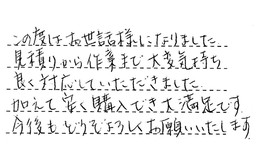 この度はお世話様になりました
見積りから作業まで大変気持ち
良く対応していただきました
加えて安く購入でき大満足です
今後もどうぞよろしくお願いいたします